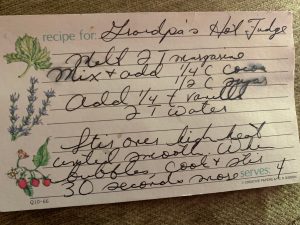 recipe for: Grandpa's Hot Fudge
Melt 2 T margarine
Mix + add 1/4 C cocoa
1/2 C sugar
Add 1/4 t vanilla
2 T water
Stir over high heat
until smooth. When
bubbles, cool & stir
30 seconds more
serves: 4
Q10-66